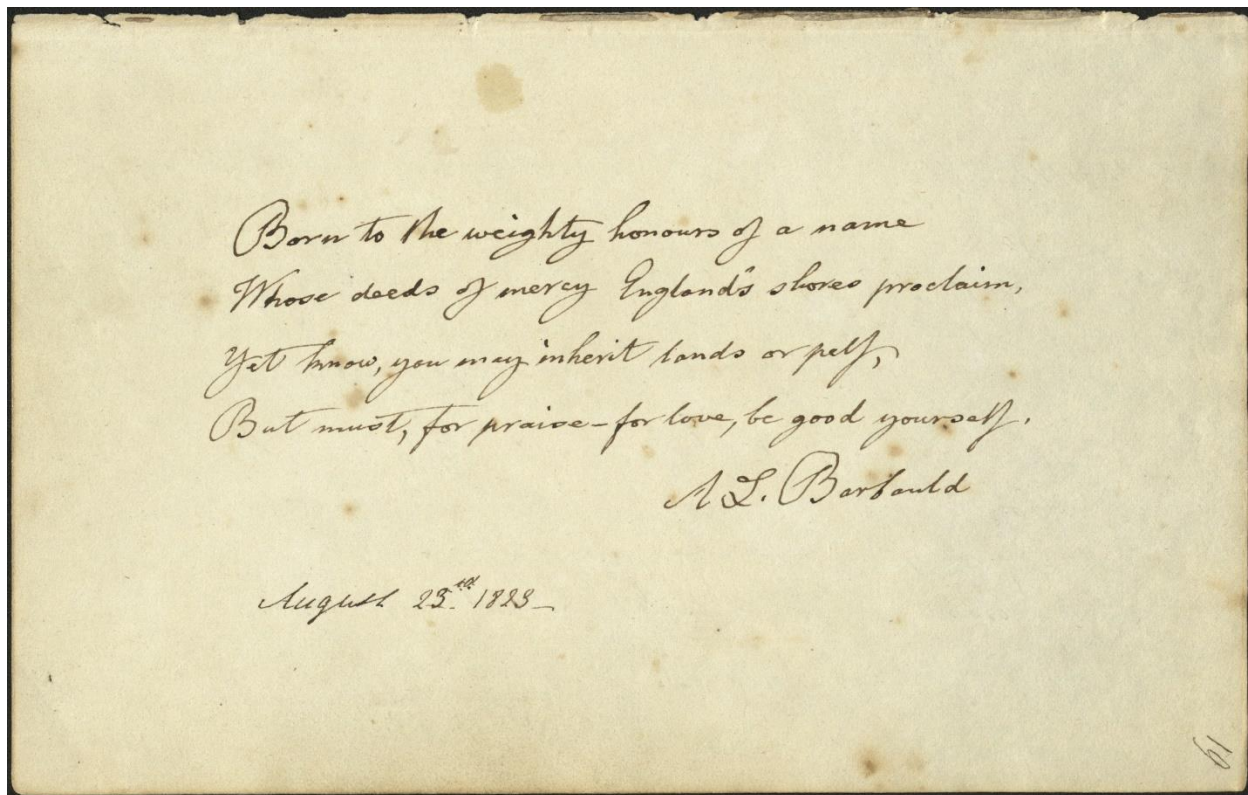 Born to the weighty honours of a name
Whose deeds of mercy England's shores proclaim,
Yet know, you may inherit lands or pelf,
But must, for praise – for love, be good yourself.
A L. Barbauld
August 23rd. 1823 –
19